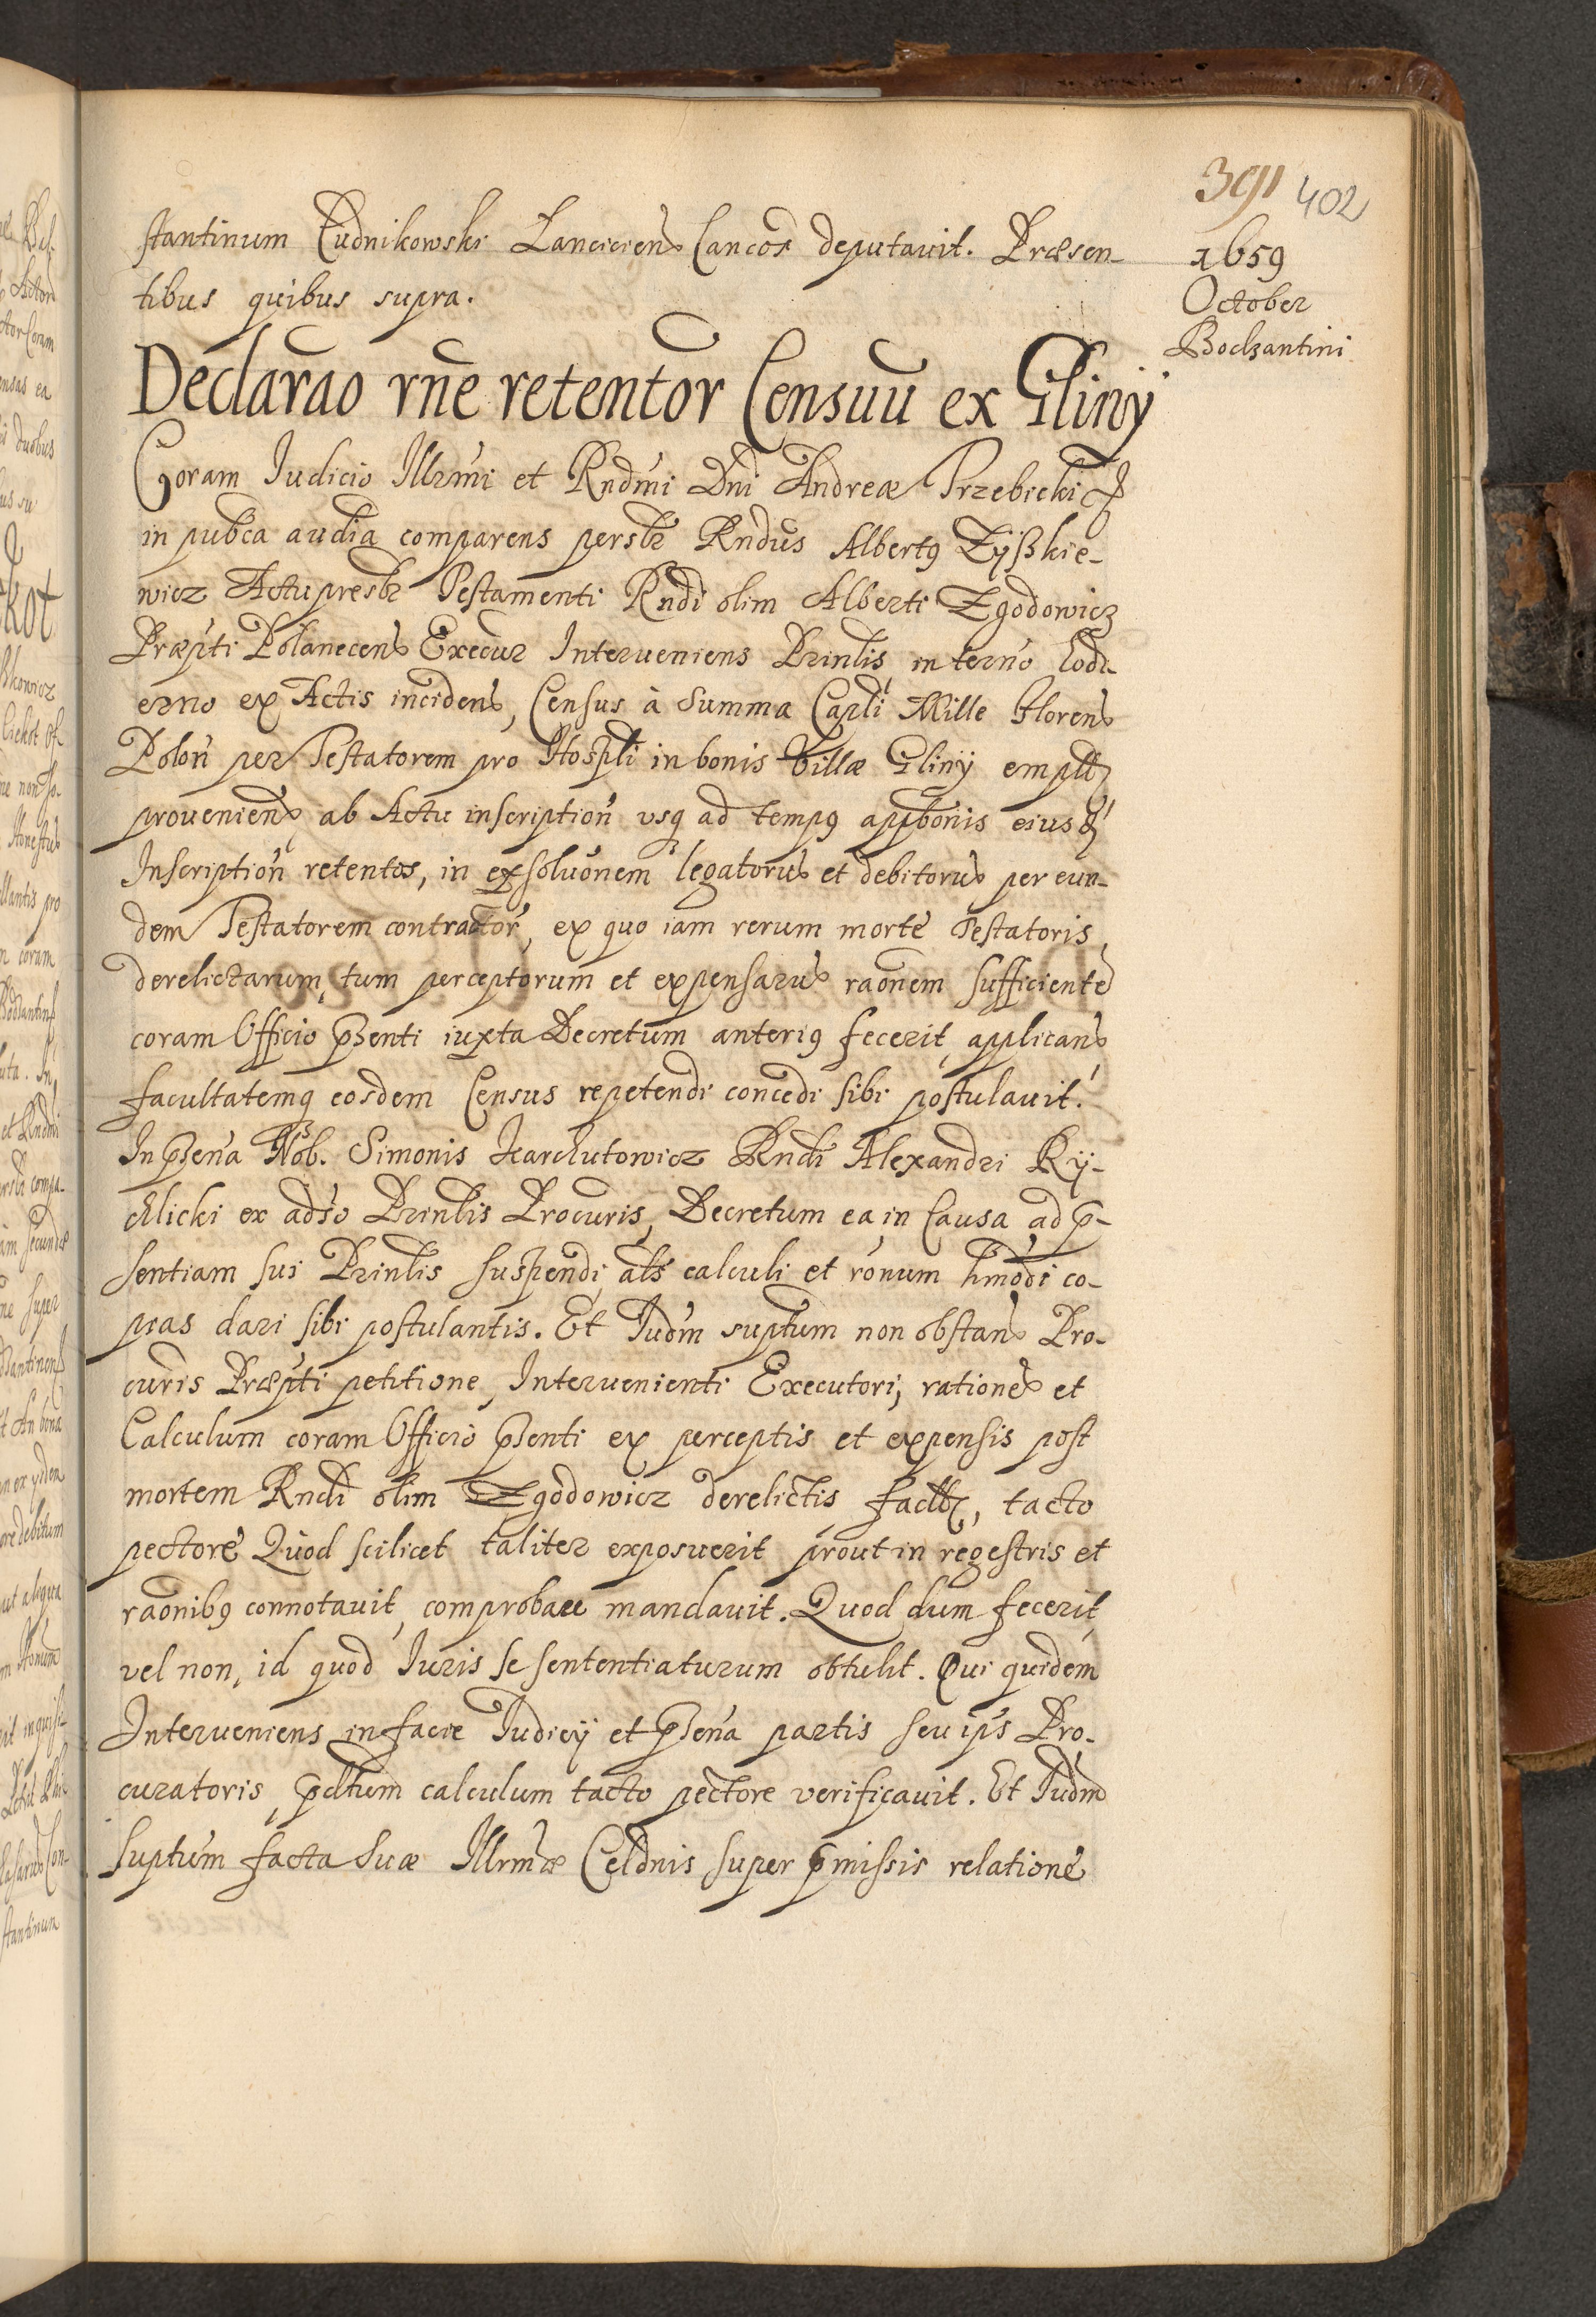 391 402
1659
October
Bodzantini
stantinum Cudnikowski Lanciciens Cancor deputauit. Præsen-
tibus quibus supra.
Declarao rne retentor Censuu ex Gliny
Coram Iudicio Illrmi et Rndmi Dni Andreæ Trzebicki
in pubca audia comparens persl̃r Rndus Albertꝯ Zyszkie-
wicz Actu presbr Testamenti Rndi olim Alberti Zgodowicz
Præpti Polanecens Execur Interueniens Prinlis in termo hodi-
erno ex Actis inciden, Census à Summa Capli Mille Floren
Polon per Testatorem pro Hospli in bonis Villæ Gliny
prouenien ab Actu inscription vsq ad tempꝯ appbonis eius
Inscription retentos, in exsoluonem legatoru et debitoru per eun-
dem Testatorem contractor, ex quo iam rerum morte Testatoris,
derelictarum, tum perceptorum et expensaru raonem sufficiente
coram Officio pnti iuxta Decretum anteriꝯ fecerit, applican
facultatemq eosdem Census repetendi concedi sibi postulauit.
In Nob. Simonis Karchutowicz Rndi Alexandri Ry-
chlicki ex adso Prinlis Procuris, Decretum ea in Causa ad p-
sentiam sui Prinlis suspendi als calculi et ronum hmodi co-
pias dari sibi postulantis. Et Iudm suptum non obstan Pro-
curis Præpti petitione, Interuenienti Executori, rationes et
Calculum coram Officio ex perceptis et expensis post
mortem Rndi olim Zgodowicz derelictis, tacto
pectore Quod scilicet taliter exposuerit prout in regestris et
raonibꝯ connotauit, comprobare mandauit. Quod dum fecerit,
vel non, id quod Iuris se sententiaturum obtulit. Qui quidem
Interueniens in facie Iudicÿ et partis seu ips Pro-
curatoris, pdtum calculum tacto pectore verificauit. Et Iudm
suptum facta Suæ Illrmæ Celdnis super pmissis relatione